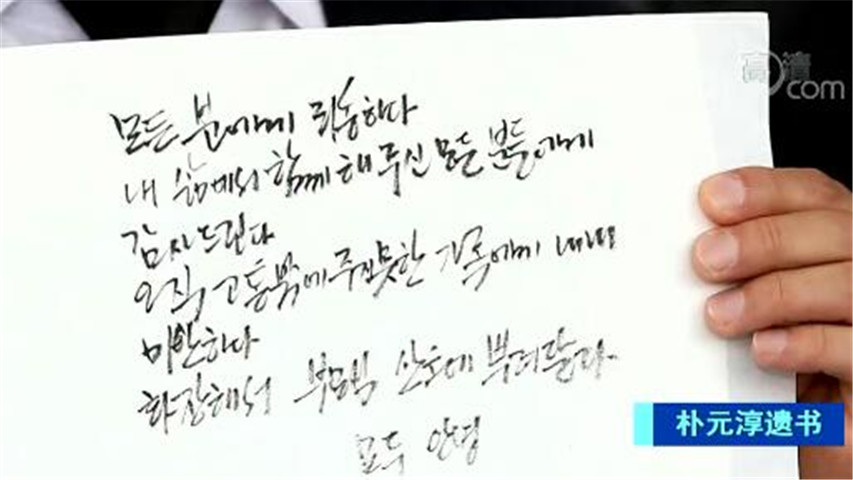 高清
com
모든 분에게 죄송하다
내 삶에서 함께 해 주신 모든 분들에게
감사드린다
오직 고통밖에 주지 못한 가족에게 내내
미안하다
화장해서 부모님 산소에 뿌려달라
모두 안녕
朴元淳遗书